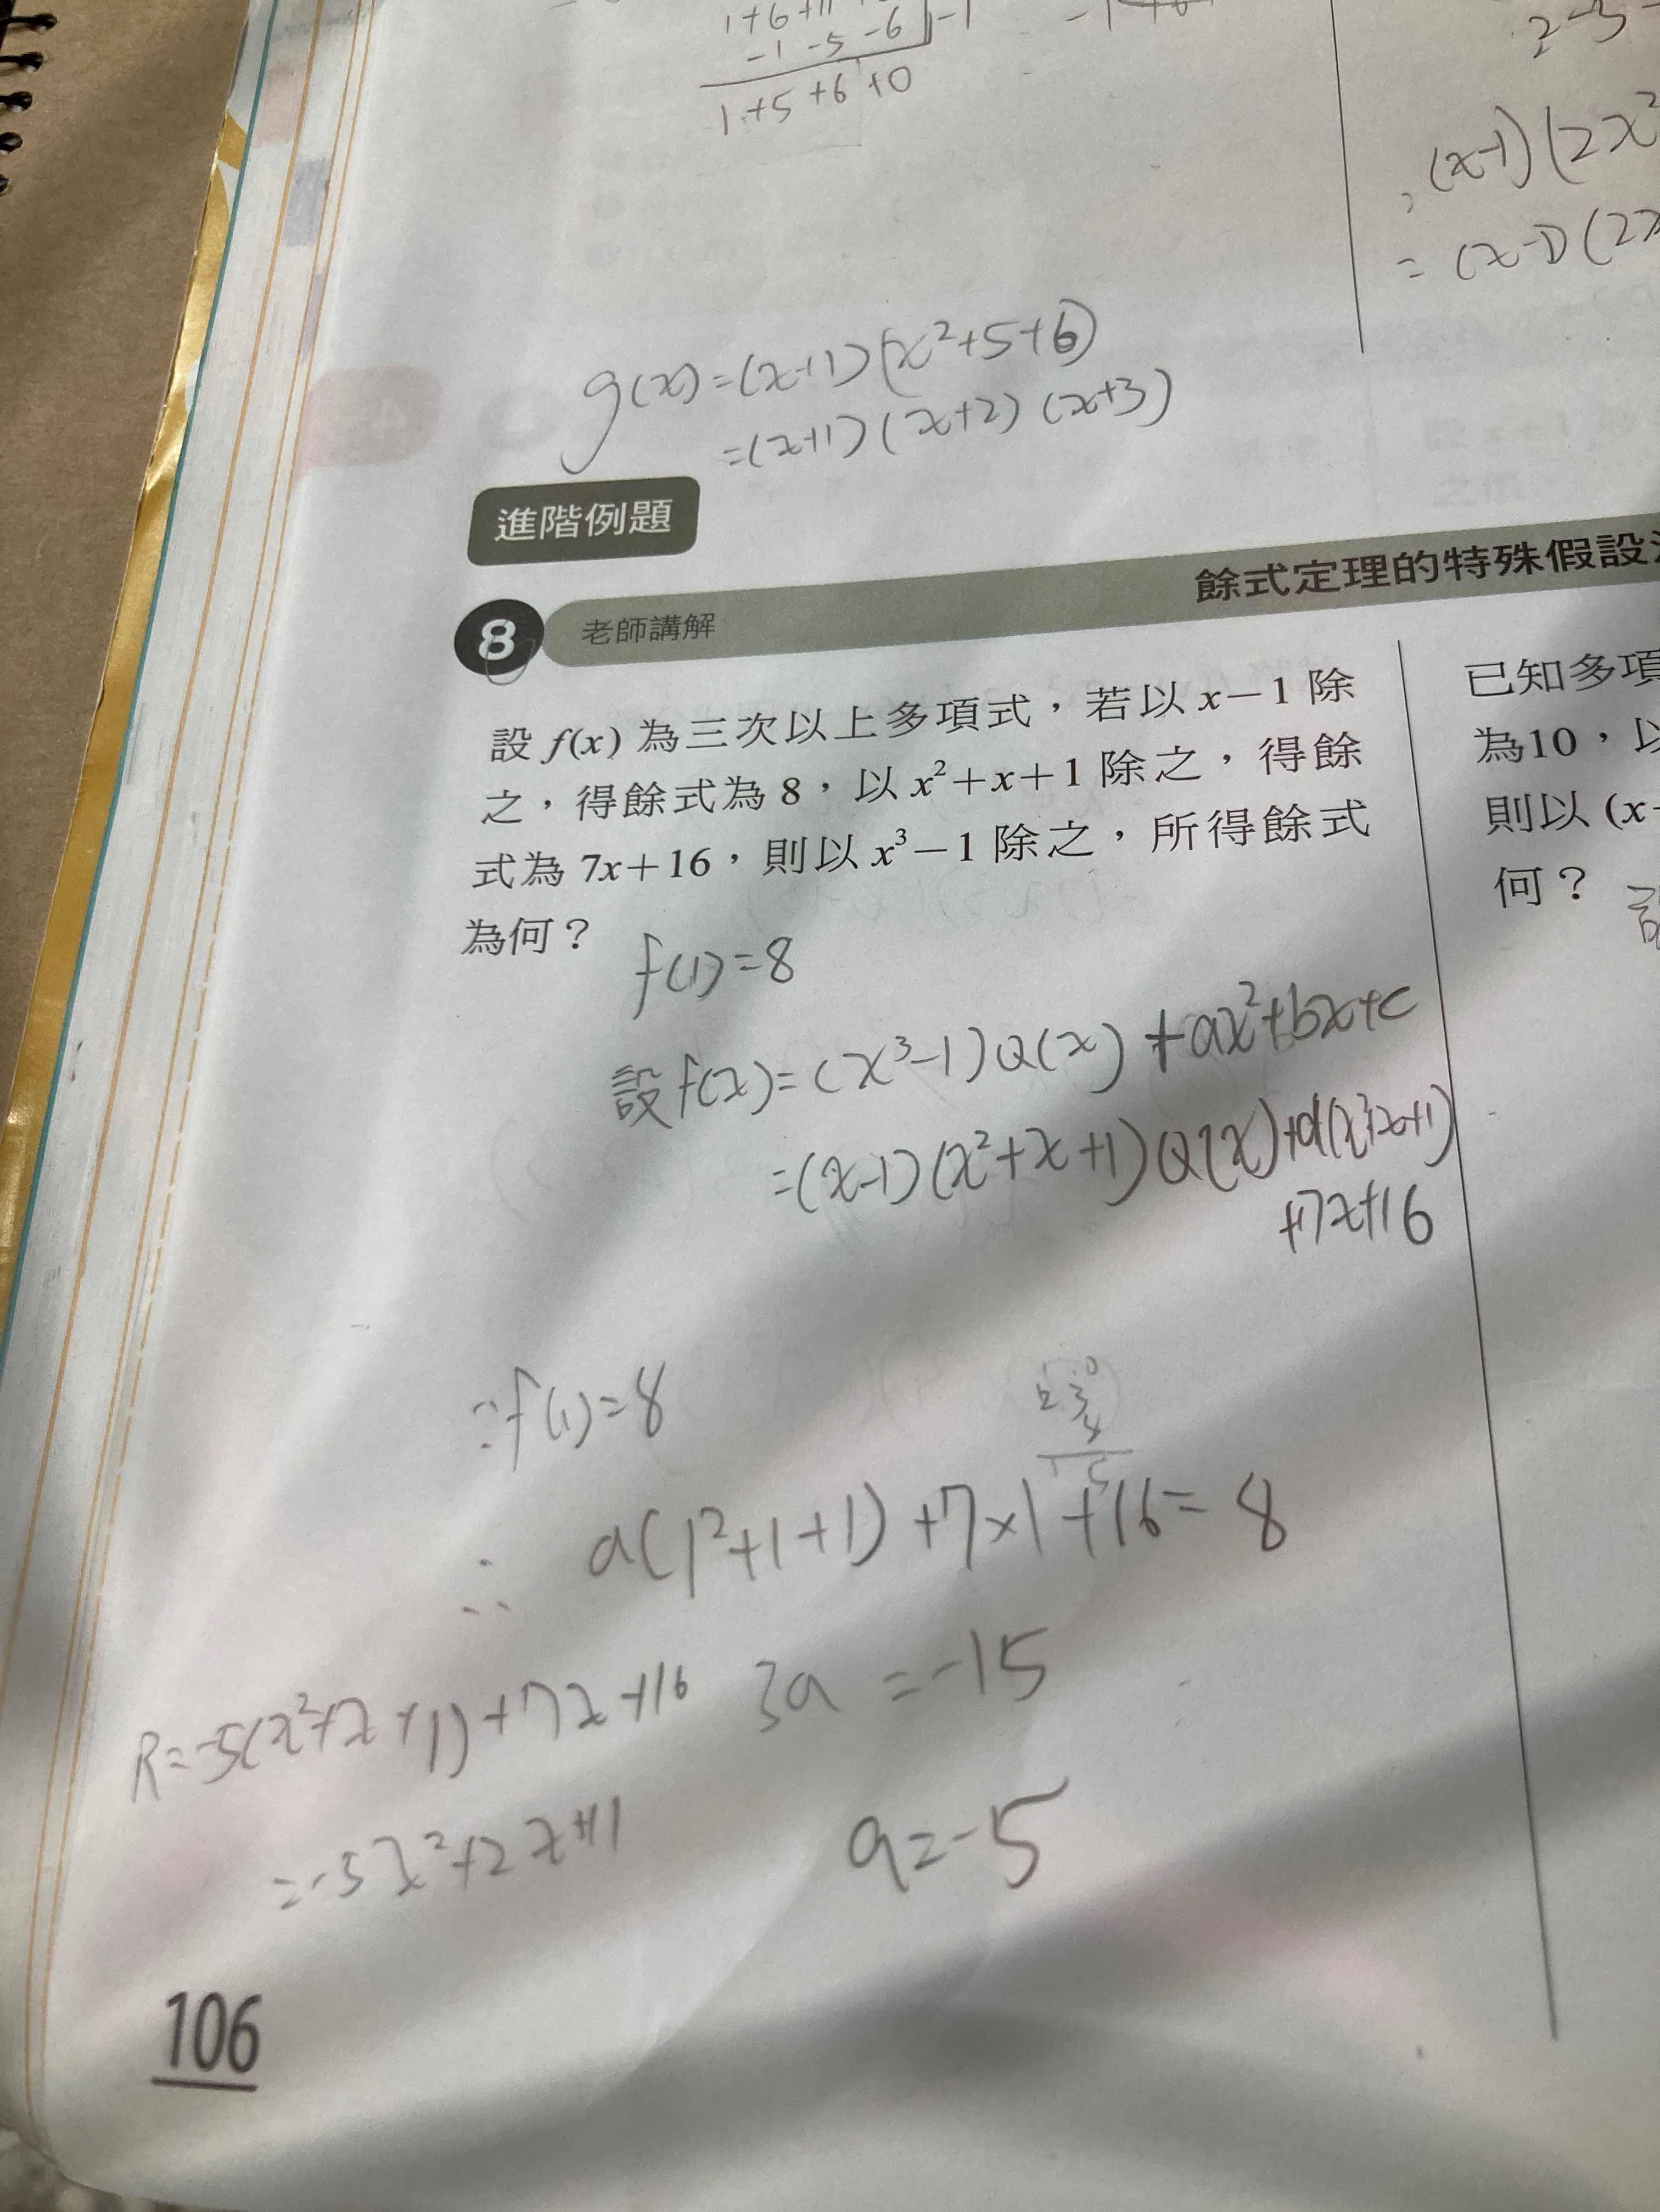 1+6+11
-1 -5 -6 -1
1+5+6+0
2-3-
,(x-1)(2x²
=(x-1)(2x
g(x)=(x+1)(x²+5+6)
=(x+1)(x+2)(x+3)
進階例題
餘式定理的特殊假設
8 老師講解
設 f(x) 為三次以上多項式，若以 x−1 除
之，得餘式為 8，以 x²+x+1 除之，得餘
式為 7x+16，則以 x³−1 除之，所得餘式
為何？
f(1)=8
設f(x)=(x³-1)Q(x)+ax²+bx+c
=(x-1)(x²+x+1)Q(x)+a(x²+x+1)
+7x+16
∵f(1)=8
∴ a(1²+1+1)+7×1+16=8
3a=-15
a=-5
R=-5(x²+x+1)+7x+16
=-5x²+2x+11
106
已知多項
為10，以
則以 (x
何？